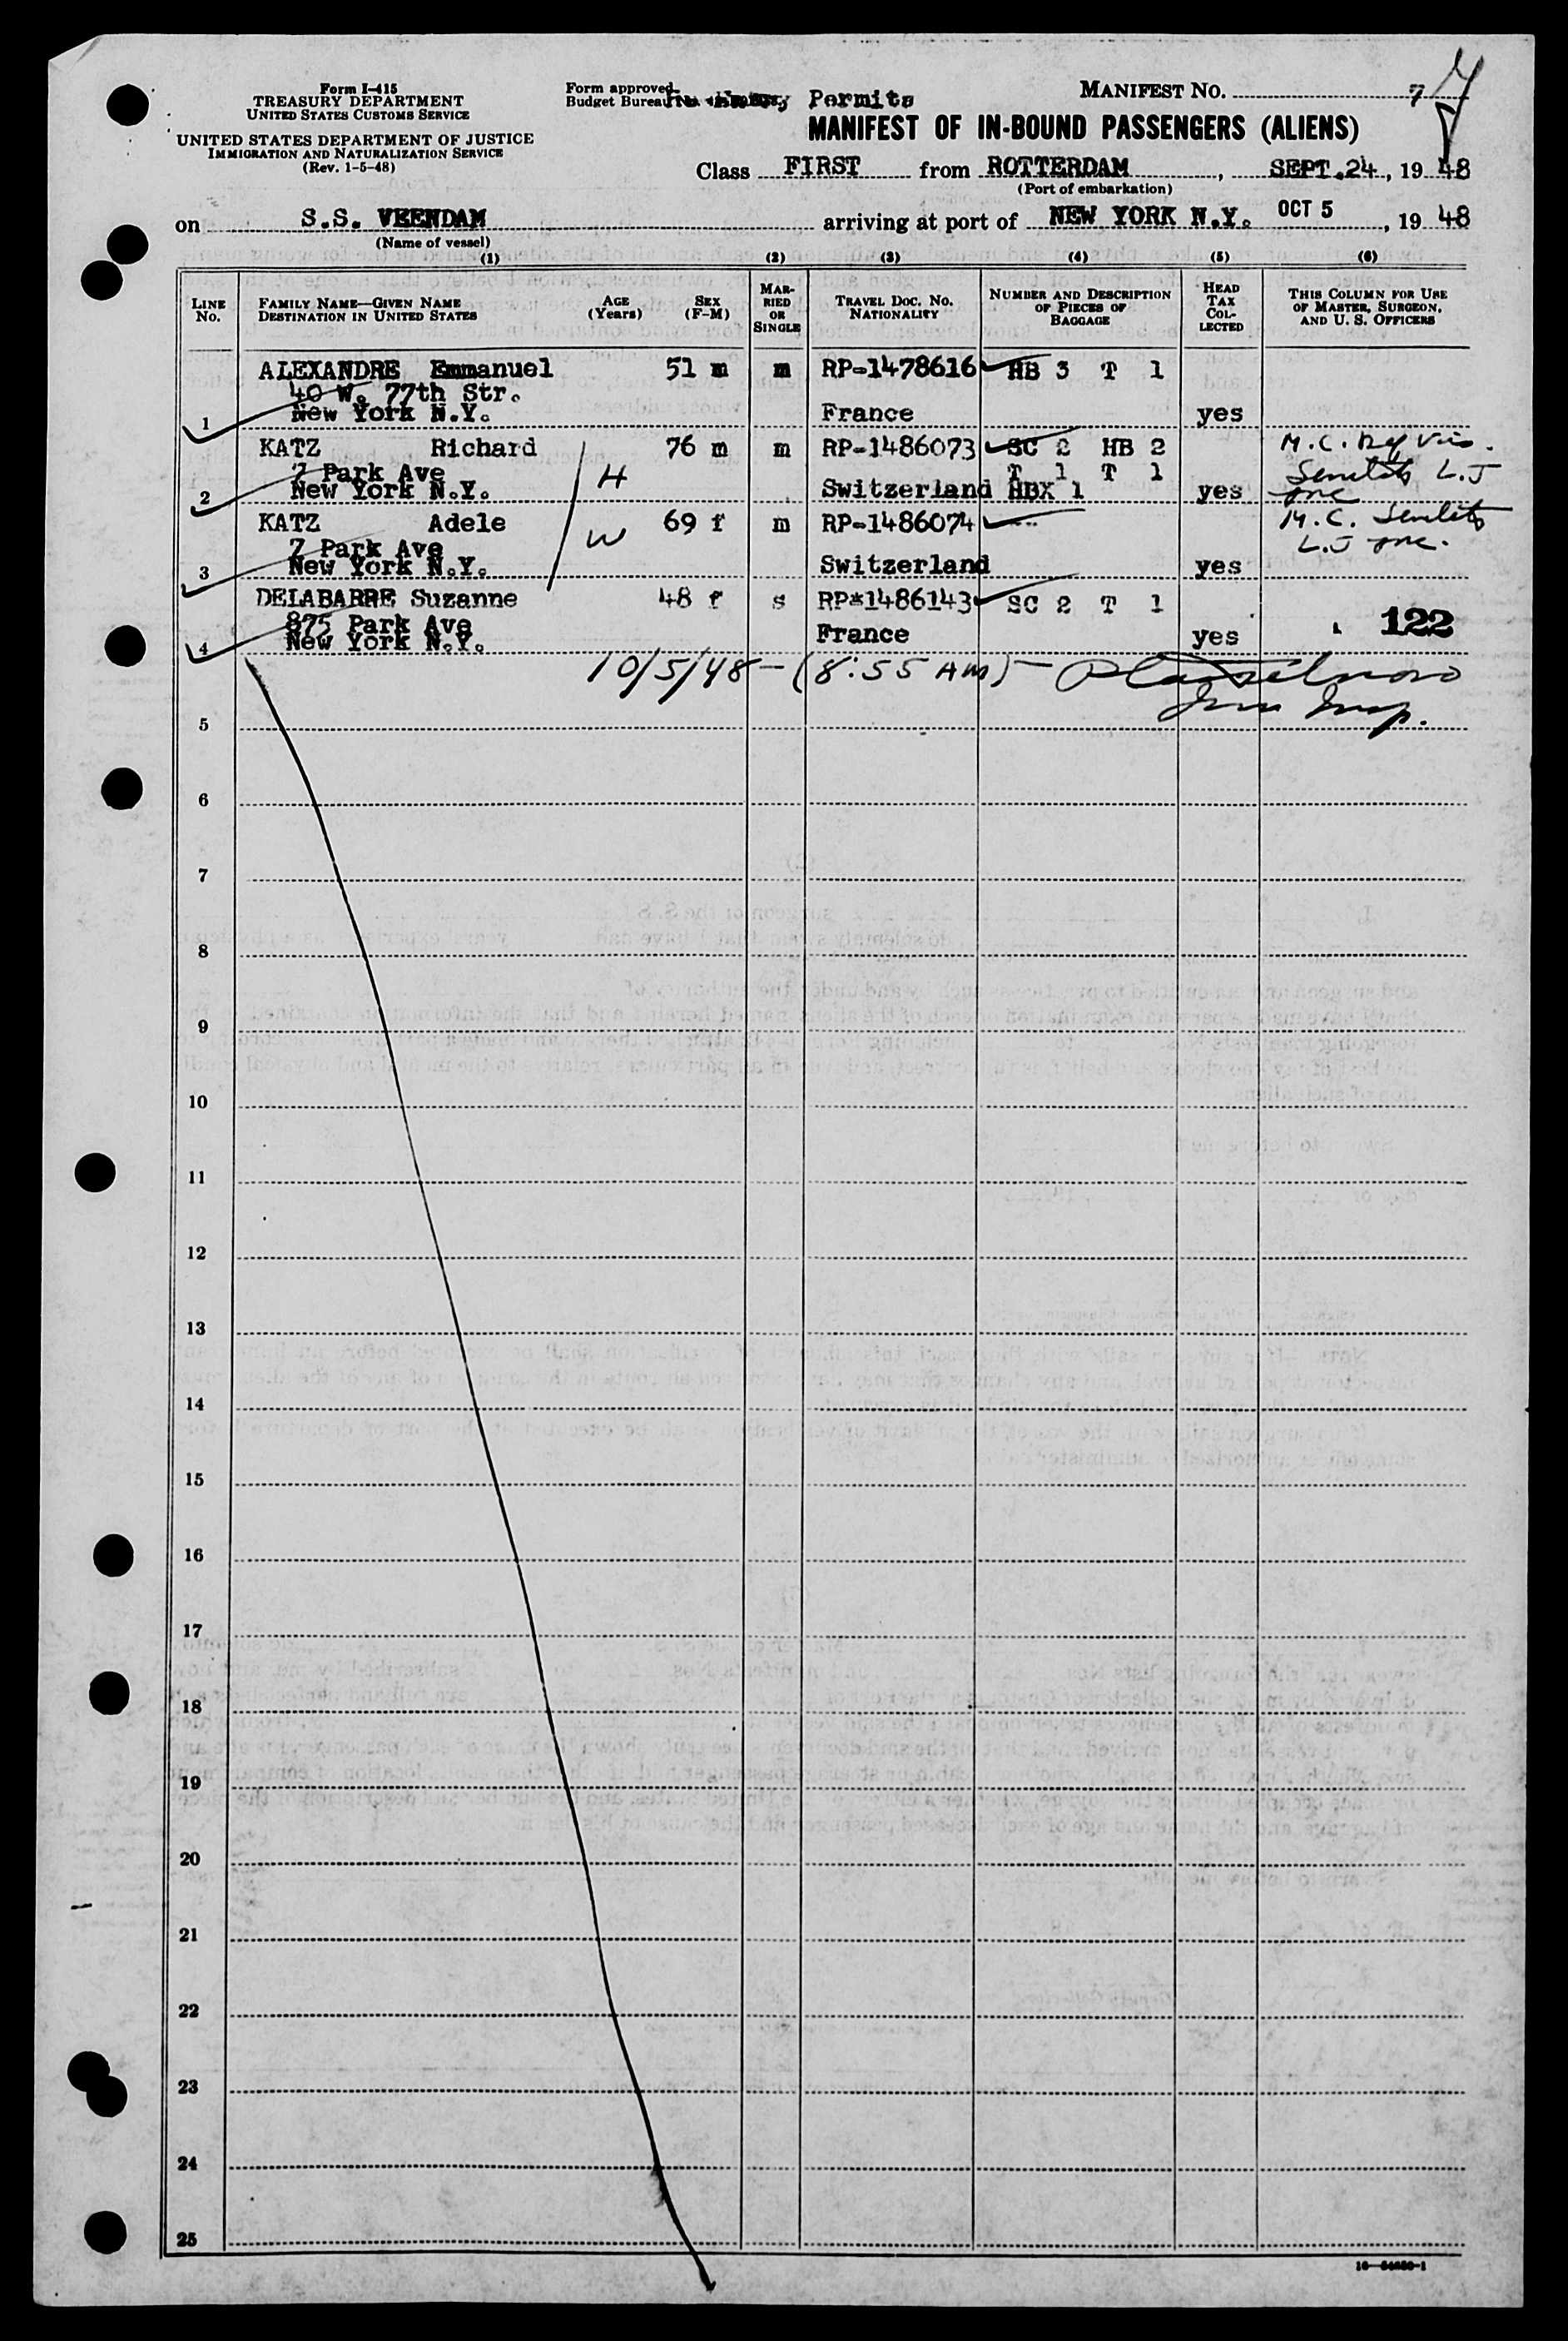 Form I-415
TREASURY DEPARTMENT
UNITED STATES CUSTOMS SERVICE
UNITED STATES DEPARTMENT OF JUSTICE
IMMIGRATION AND NATURALIZATION SERVICE
(Rev. 1-5-48)
Form approved
Budget Bureau Permits
MANIFEST NO. 7
7
MANIFEST OF IN-BOUND PASSENGERS (ALIENS)
Class FIRST from ROTTERDAM, SEPT.24, 1948
(Port of embarkation)
on S.S. VEENDAM arriving at port of NEW YORK N.Y. OCT 5, 1948
(Name of vessel)
(1) (2) (3) (4) (5) (6)
LINE No. FAMILY NAME—GIVEN NAME DESTINATION IN UNITED STATES AGE (Years) SEX (F-M) MARRIED OR SINGLE TRAVEL DOC. NO. NATIONALITY NUMBER AND DESCRIPTION OF PIECES OF BAGGAGE HEAD TAX COLLECTED THIS COLUMN FOR USE OF MASTER, SURGEON, AND U. S. OFFICERS
ALEXANDRE Emmanuel 51 m m RP-1478616 HB 3 T 1
40 W. 77th Str.
1 New York N.Y. France yes
KATZ Richard 76 m m RP-1486073 SC 2 HB 2 M.C.
7 Park Ave H T 1 T 1 L.J
2 New York N.Y. Switzerland HBX 1 yes
KATZ Adele 69 f m RP-1486074 -- M.C.
7 Park Ave W L.J
3 New York N.Y. Switzerland yes
DELABARRE Suzanne 48 f s RP*1486143 SC 2 T 1
875 Park Ave 122
4 New York N.Y. France yes
10/5/48 - (8:55 AM) -
Imm Insp.
5
6
7
8
9
10
11
12
13
14
15
16
17
18
19
20
21
22
23
24
25